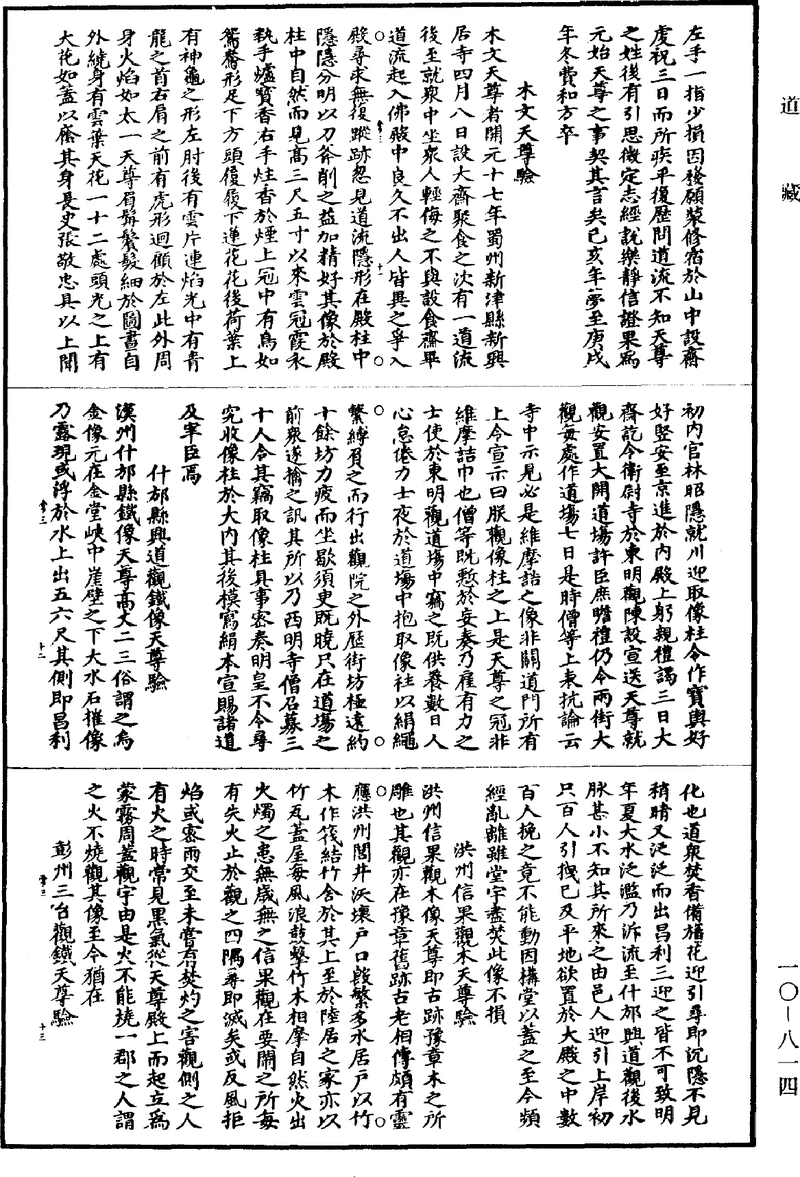 道藏
左手一指少損因發願裝修宿於山中設齋
虔祝三日而所疾平復歷問道流不知天尊
之姓後有引思微定志經說樂靜信證果為
元始天尊之事契其言矣己亥年夢至庚戌
年冬費和方卒
木文天尊驗
木文天尊者開元十七年蜀州新津縣新興
居寺四月八日設大齋聚食之次有一道流
後至就衆中坐衆人輕侮之不與設食齋畢
道流起入佛殿中良久不出人皆異之爭入
殿尋求無復蹤跡忽見道流隱形在殿柱中
隱隱分明以刀斧削之益加精好其像於殿
柱中自然而見高三尺五寸以來雲冠霞衣
執手爐寶香右手炷香於煙上冠中有鳥如
鴛鴦形足下方頭履履下蓮花花後荷葉上
有神龜之形左肘後有雲片連焰光中有青
龍之首右肩之前有虎形迴顧於左此外周
身火焰如太一天尊眉鬅鬢髮細於圖畫自
外繞身有雲葉天花一十二處頭光之上有
大花如蓋以廕其身長史張敬忠具以上聞
初內官林昭隱就川迎取像柱令作寶輿好
好豎安至京進於內殿上躬親禮謁三日大
齋訖令衛尉寺於東明觀陳設宣送天尊就
觀安置大開道場許臣庶瞻禮仍令兩街大
觀每處作道場七日是時僧等上表抗論云
寺中示見必是維摩詰之像非關道門所有
上令宣示曰朕觀像柱之上是天尊之冠非
維摩詰巾也僧等既慙於妄奏乃雇有力之
士使於東明觀道場中竊之既供養數日人
心怠倦力士夜於道場中抱取像柱以絹繩
繫縛負之而行出觀院之外歷街坊極遠約
十餘坊力疲而坐歇須吏既曉只在道場之
前衆遂擒之訊其所以乃西明寺僧召募三
十人合其竊取像柱具事密奏明皇不令尋
究收像柱於大內其後模寫絹本宣賜諸道
及宰臣焉
什邡縣興道觀鐵像天尊驗
漢州什邡縣鐵像天尊高丈二三俗謂之烏
金像元在金堂峽中崖壁之下大水石摧像
乃露現或浮於水上出五六尺其側即昌利
化也道衆焚香備旛花迎引尋即沉隱不見
稍晴又泛泛而出昌利三迎之皆不可致明
年夏大水泛濫乃泝流至什邡興道觀後水
脉甚小不知其所來之由邑人迎引上岸初
只百人引拽已及平地欲置於大殿之中數
百人挽之竟不能動因構堂以蓋之至今頻
經亂離雖堂宇盡焚此像不損
洪州信果觀木天尊驗
洪州信果觀木像天尊即古跡豫章木之所
雕也其觀亦在豫章舊跡古老相傳頗有靈
應洪州閭井沃壤戶口殷繁多水居戶以竹
木作筏結竹舍於其上至於陸居之家亦以
竹瓦蓋屋每風浪鼓擊竹木相摩自然火出
火燭之患無歲無之信果觀在要閙之所每
有失火止於觀之四隅尋即滅矣或反風拒
焰或密雨交至未嘗有焚灼之害觀側之人
有火之時常見黑氣從天尊殿上而起立為
蒙霧周蓋觀宇由是火不能燒一郡之人謂
之火不燒觀其像至今猶在
彭州三台觀鐵天尊驗
一〇－八一四